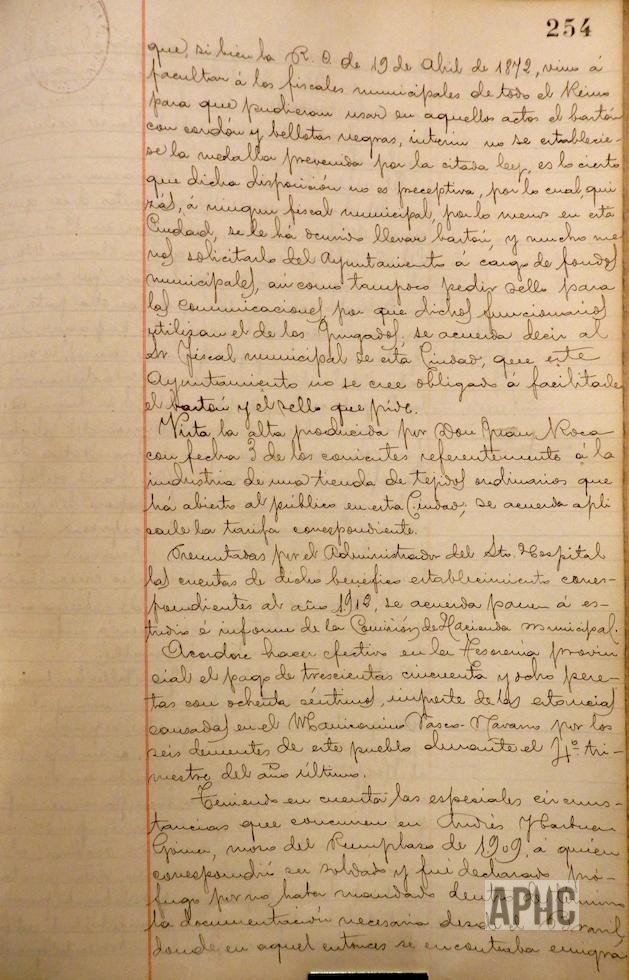 254
que, si bien la R. O. de 19 de Abril de 1872, vino á
facultar á los fiscales municipales de todo el Reino
para que pudieran usar en aquellos actos el bastón
con cordón y bellotas negras, interin no se establecie-
se la medalla prevenida por la citada ley, es lo cierto
que dicha disposición no es preceptiva, por lo cual, qui
zás, á ningun fiscal municipal, por lo menos en esta
Ciudad, se le há ocurrido llevar bastón, y mucho me
nos solicitarlo del Ayuntamiento á cargo de fondos
municipales, así como tampoco pedir sello para
las comunicaciones, por que dichos funcionarios
utilizan el de los Juzgados, se acuerda decir al
Sr. Fiscal municipal de esta Ciudad, que este
Ayuntamiento no se cree obligado á facilitarle
el bastón y el sello que pide.
Vista la alta producida por Don Juan Roca
con fecha 3 de los corrientes referentemente á la
industria de una tienda de tejidos ordinarios que
há abierto al público en esta Ciudad, se acuerda apli
carle la tarifa correspondiente.
Presentadas por el Administrador del Sto. Hospital
las cuentas de dicho benéfico establecimiento corres-
pondientes al año 1912, se acuerda pasen á es-
tudio é informe de la Comisión de Hacienda municipal.
Acordose hacer efectivo en la Tesorería provin
cial el pago de trescientas cincuenta y ocho pese-
tas con ochenta céntimos, importe de las estancias
causadas en el Manicomio Vasco-Navarro por los
seis dementes de este pueblo durante el 4º tri-
mestre del año último.
Teniendo en cuenta las especiales circuns-
tancias que concurren en Andrés
mozo del Reemplazo de 1909, á quién
correspondió ser soldado y fué declarado pró-
fugo por no haber mandado dentro
la documentación necesaria
donde en aquel entonces se encontraba emigra
APHC